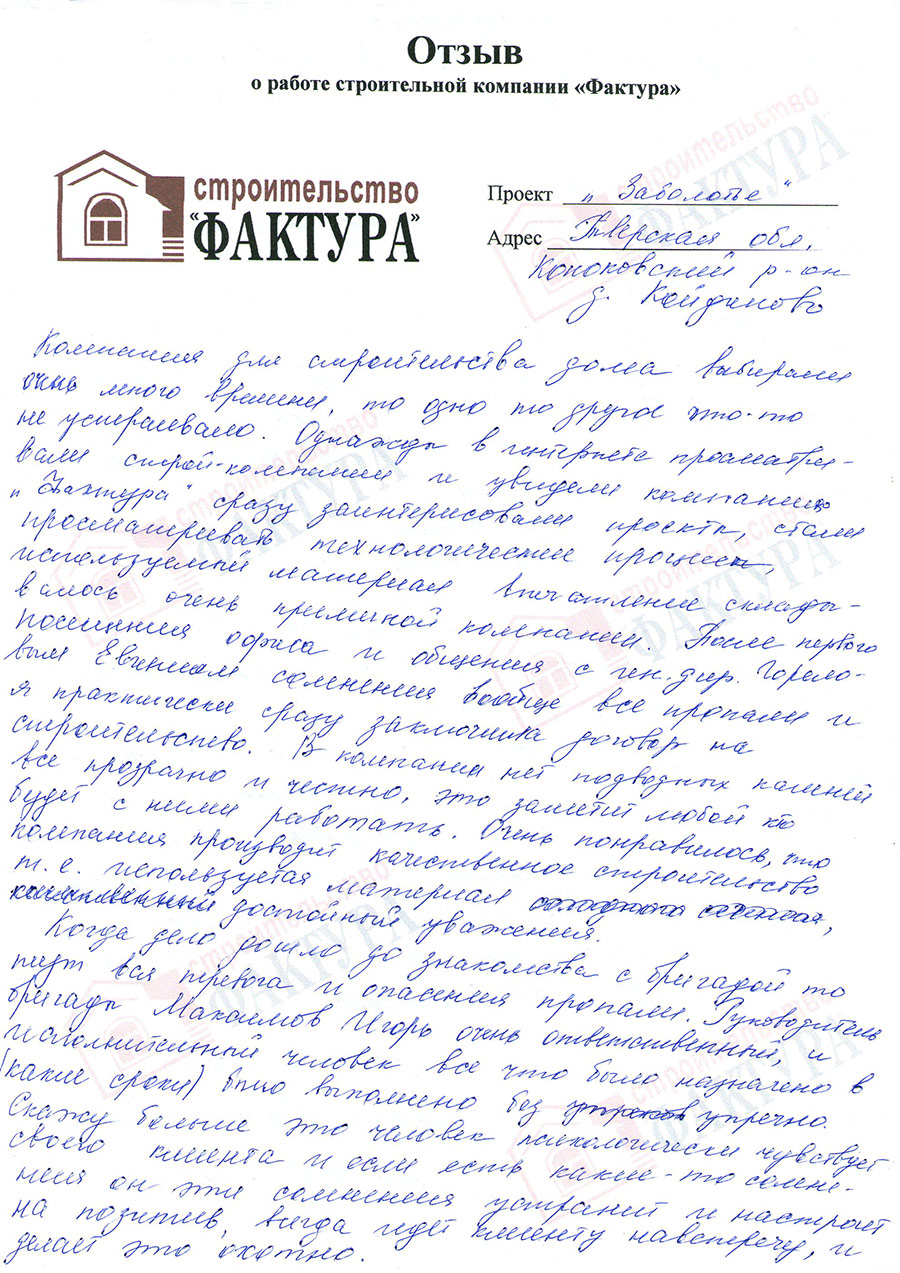 Отзыв
о работе строительной компании «Фактура»
строительство
"ФАКТУРА"
Проект „ Заболотье"
Адрес Тверская обл.
Конаковский р-он
д. Койданово
Компания для строительства дома выбирали
очень много времени, то одно то другое что-то
не устраивало. Однажды в интернете просматри-
вали строй-компании и увидели компанию
„ Фактура" сразу заинтерисовали проекты, стали
просматривать технологические процессы,
используемый материал впечатление склады-
валось очень приличной компании. После первого
посещения офиса и общения с ген.дир. Горело-
вым Евгением сомнения вообще все пропали и
я практически сразу заключила договор на
строительство. В компании нет подводных камней
все прозрачно и честно, это заметит любой кто
будет с ними работать. Очень понравилось, что
компания производит качественное строительство
т. е. используется материал
достойный уважения.
Когда дело дошло до знакомства с бригадой то
тут вся тревога и опасения пропали. Руководитель
бригады Максимов Игорь очень ответственный, и
исполнительный человек все что было назначено в
(какие сроки) было выполнено без упречно.
Скажу больше это человек психологически чувствует
своего клиента и если есть какие-то сомне-
ния он эти сомнения устранит и настроит
на позитив, всегда идет клиенту навстречу, и
делает это охотно.